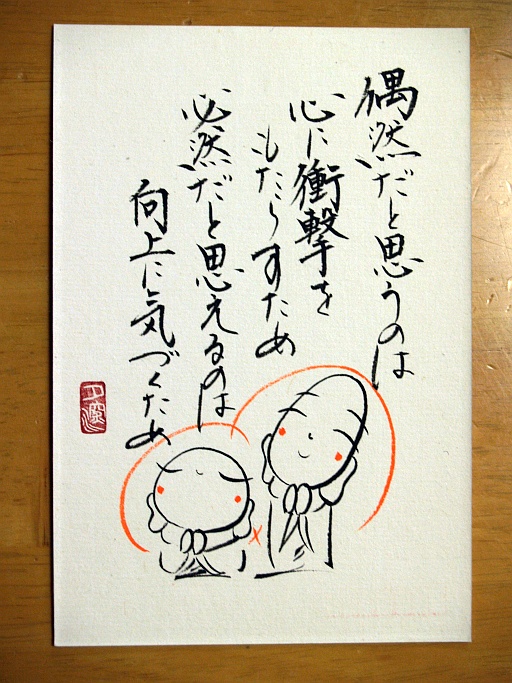 偶然だと思うのは
心に衝撃を
もたらすため
必然だと思えるのは
向上に気づくため